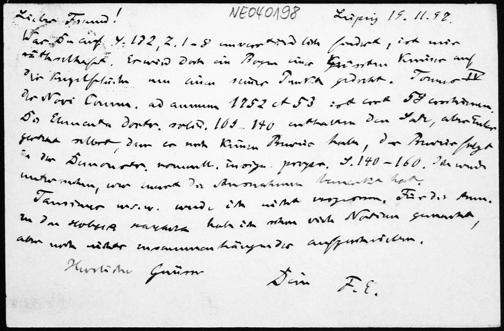 NE040198
Lieber Freund! Leipzig 19.11.97.
Was Du auf S. 172, Z. 1-8 unverständlich findest, ist mir
rätselhaft. Es wird doch ein Bogen eines grössten Kreises auf
der Kugelfläche um einen seiner Punkte gedreht. Tomus IV
der Novi Comm. ad annum 1752 et 53 ist erst 58 erschienen.
Die Elementa doctr. solid. 109-140 enthalten den Satz, aber Euler
gesteht selbst, dass er noch keinen Beweis habe, der Beweis folgt
in der Demonstr. nonnull. insign. propr. S. 140-160. Ich werde
untersuchen, wer zuerst die Ausnahmen bemerkt hat.
Taurinus u.s.w. werde ich nicht vergessen. Für die Anm.
zu den habe ich schon viele Notizen gemacht,
aber noch nichts zusammenhängendes aufgeschrieben.
Herzliche Grüsse
Dein F. E.